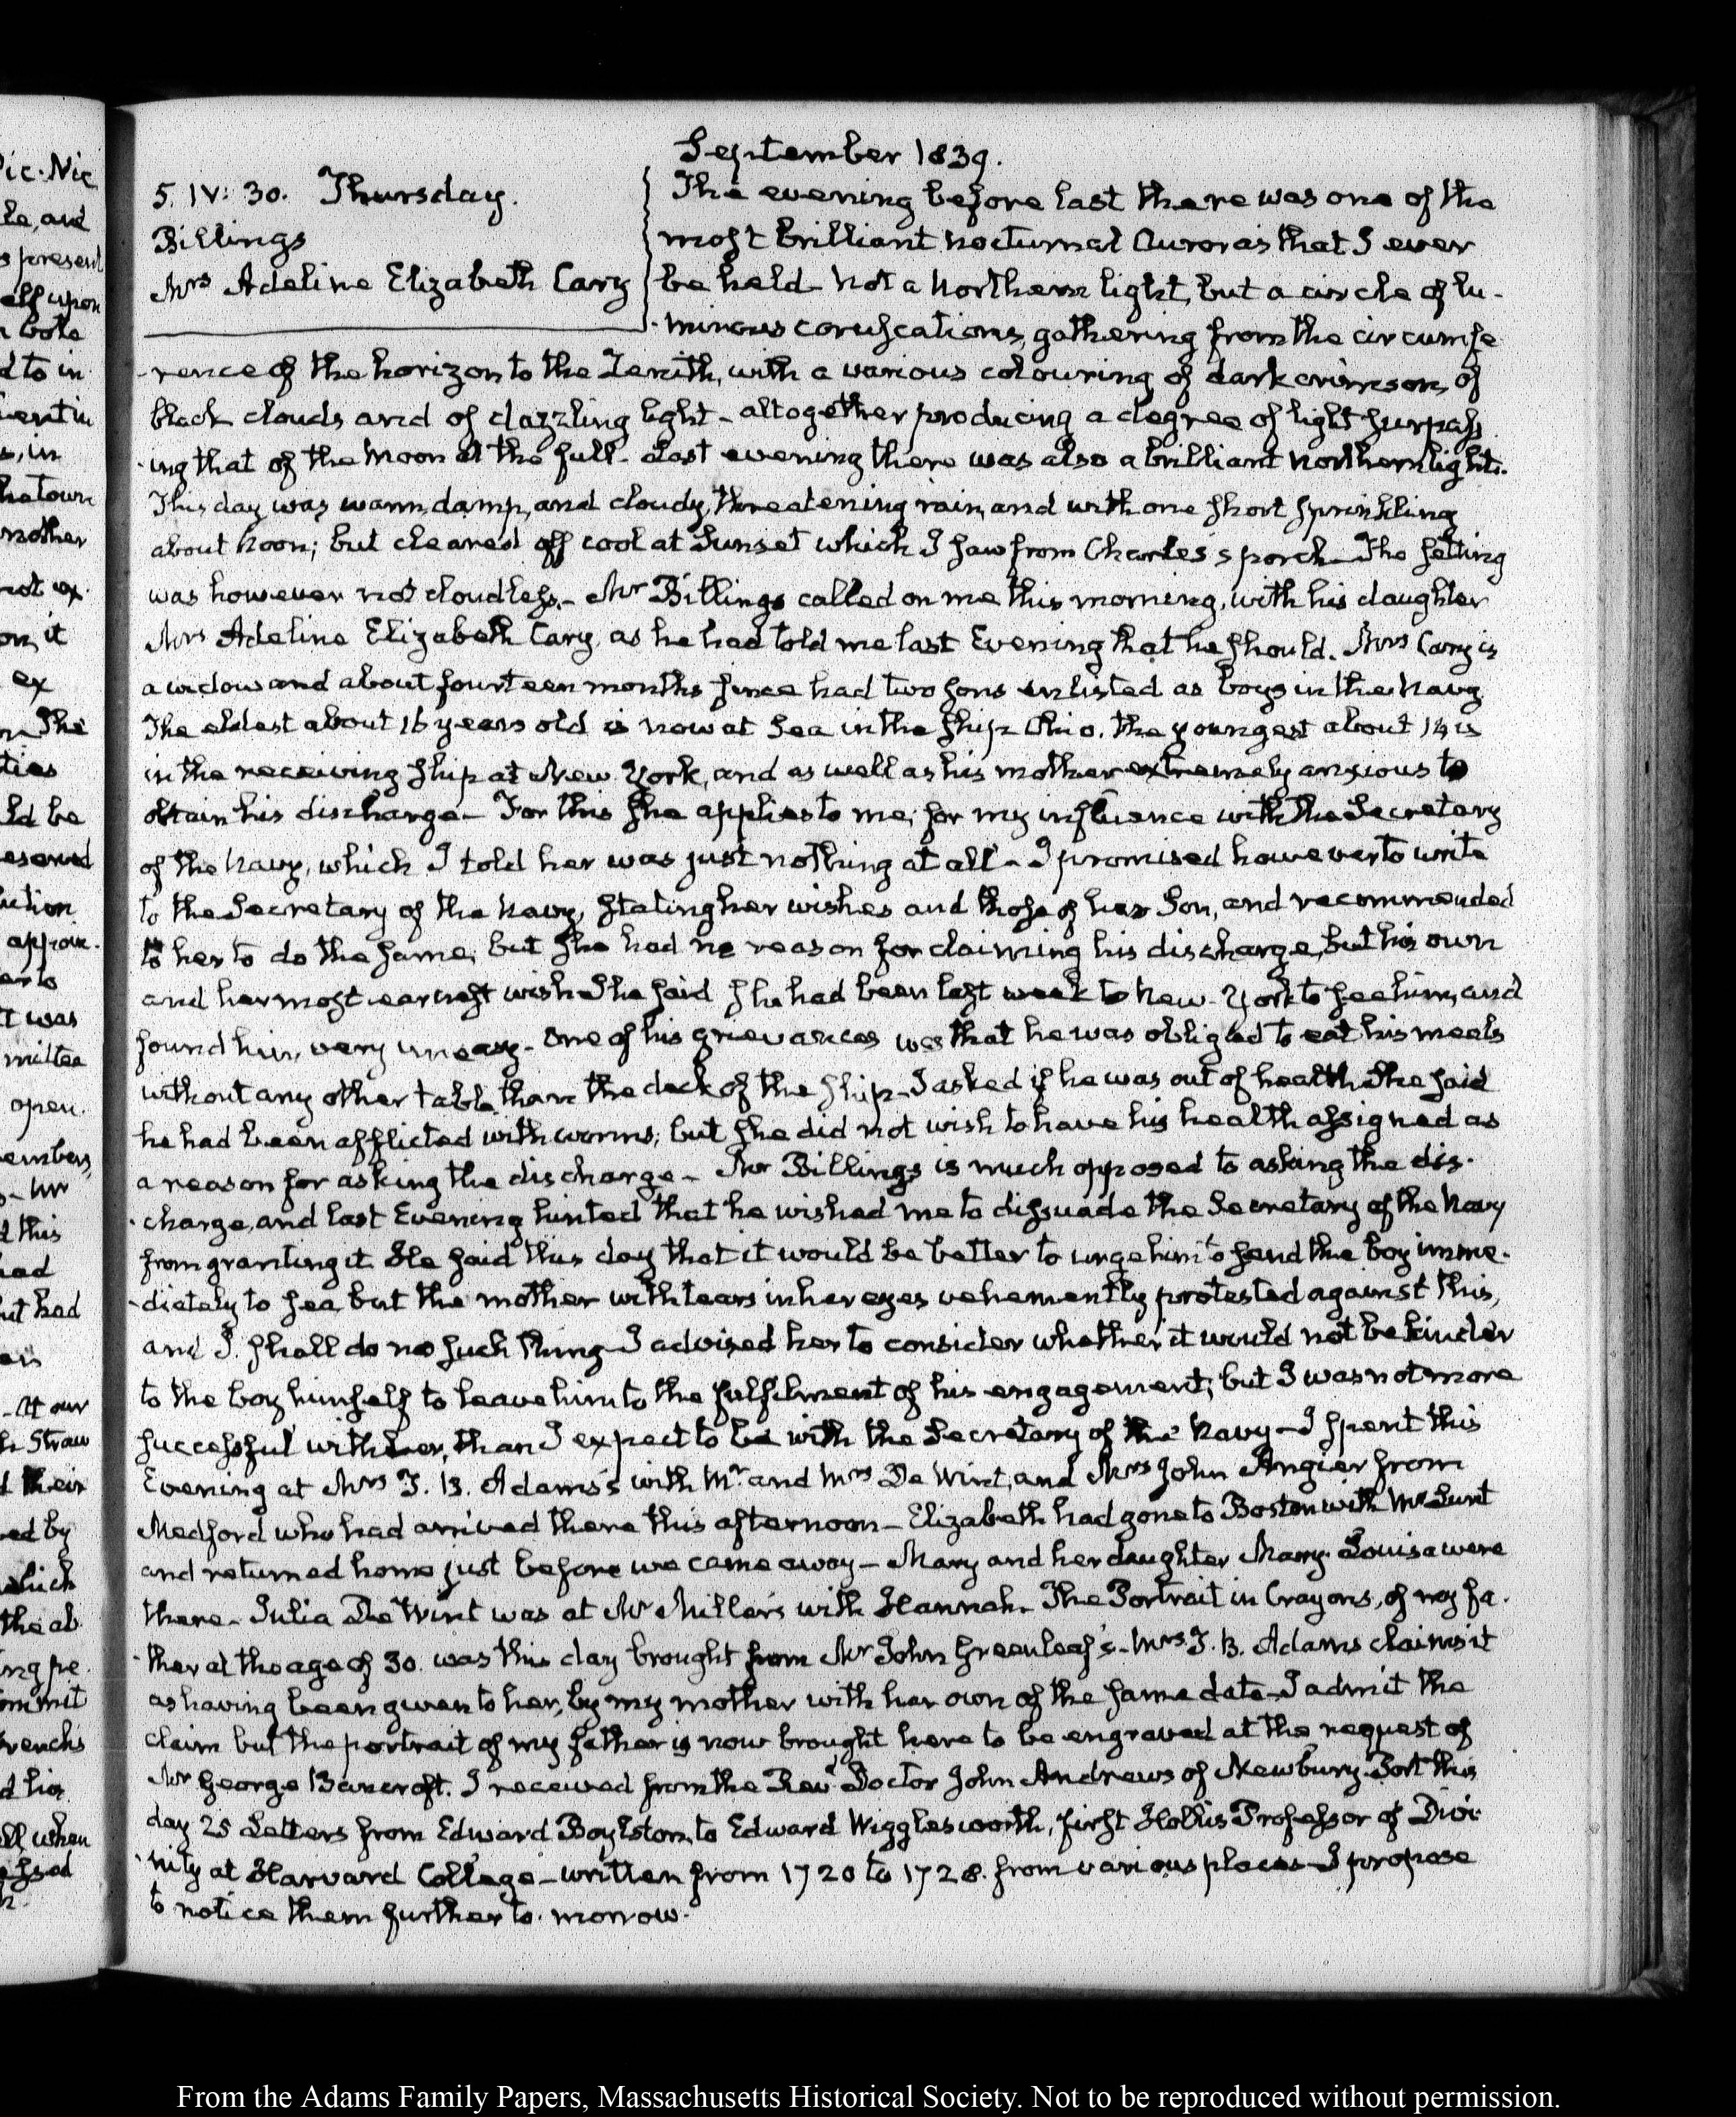 September 1839.
5. IV: 30. Thursday.
Billings
Mrs Adeline Elizabeth Cary
The evening before last there was one of the
most brilliant nocturnal Auroras that I ever
beheld - not a Northern light, but a circle of lu-
-minous coruscations, gathering from the circumfe-
-rence of the horizon to the Zenith, with a various colouring of dark crimson, of
black clouds and of dazzling light - altogether producing a degree of light surpass
-ing that of the Moon at the full - Last evening there was also a brilliant Northern light.
This day was warm, damp, and cloudy, threatening rain, and with one short sprinkling
about Noon; but cleared off cool at Sunset which I saw from Charles's porch - The setting
was however not cloudless. - Mr Billings called on me this morning, with his daughter
Mrs Adeline Elizabeth Cary, as he had told me last Evening that he should. Mrs Cary is
a widow and about fourteen months since had two sons enlisted as boys in the Navy
The eldest about 16 years old is now at Sea in the ship Ohio. the youngest about 14 is
in the receiving ship at New-York, and as well as his mother extremely anxious to
obtain his discharge - For this she applies to me, for my influence with the Secretary
of the Navy, which I told her was just nothing at all - I promised however to write
to the Secretary of the Navy, stating her wishes and those of her Son, and recommended
to her to do the same; but she had no reason for claiming his discharge, but his own
and her most earnest wish - She said she had been last week to New-York to see him, and
found him very uneasy - One of his grievances was that he was obliged to eat his meals
without any other table than the deck of the ship - I asked if he was out of health - She said
he had been afflicted with worms; but she did not wish to have his health assigned as
a reason for asking the discharge - Mr Billings is much opposed to asking the dis-
-charge, and last Evening hinted that he wished me to dissuade the Secretary of the Navy
from granting it He said this day that it would be better to urge him to send the boy imme-
-diately to sea but the mother with tears in her eyes vehemently protested against this,
and I shall do no such thing - I advised her to consider whether it would not be kinder
to the boy himself to leave him to the fulfilment of his engagement; but I was not more
successful with her, than I expect to be with the Secretary of the Navy - I spent this
Evening at Mrs T. B. Adams's with Mr and Mrs De Wint, and Mrs John Angier from
Medford who had arrived there this afternoon - Elizabeth had gone to Boston with Mr Lunt
and returned home just before we came away - Mary and her daughter Mary-Louisa were
there - Julia De Wint was at Mr Miller's with Hannah - The Portrait in Crayons, of my fa-
-ther at the age of 30. was this day brought from Mr John Greenleaf's - Mrs T. B. Adams claims it
as having been given to her, by my mother with her own of the same date - I admit the
claim but the portrait of my father is now brought here to be engraved at the request of
Mr George Bancroft. I received from the Revd Doctor John Andrews of Newbury-Port this
day 25 Letters from Edward Boylston, to Edward Wigglesworth, first Hollis Professor of Divi-
-nity at Harvard College - written from 1720 to 1728. from various places - I propose
to notice them further to-morrow.
From the Adams Family Papers, Massachusetts Historical Society. Not to be reproduced without permission.